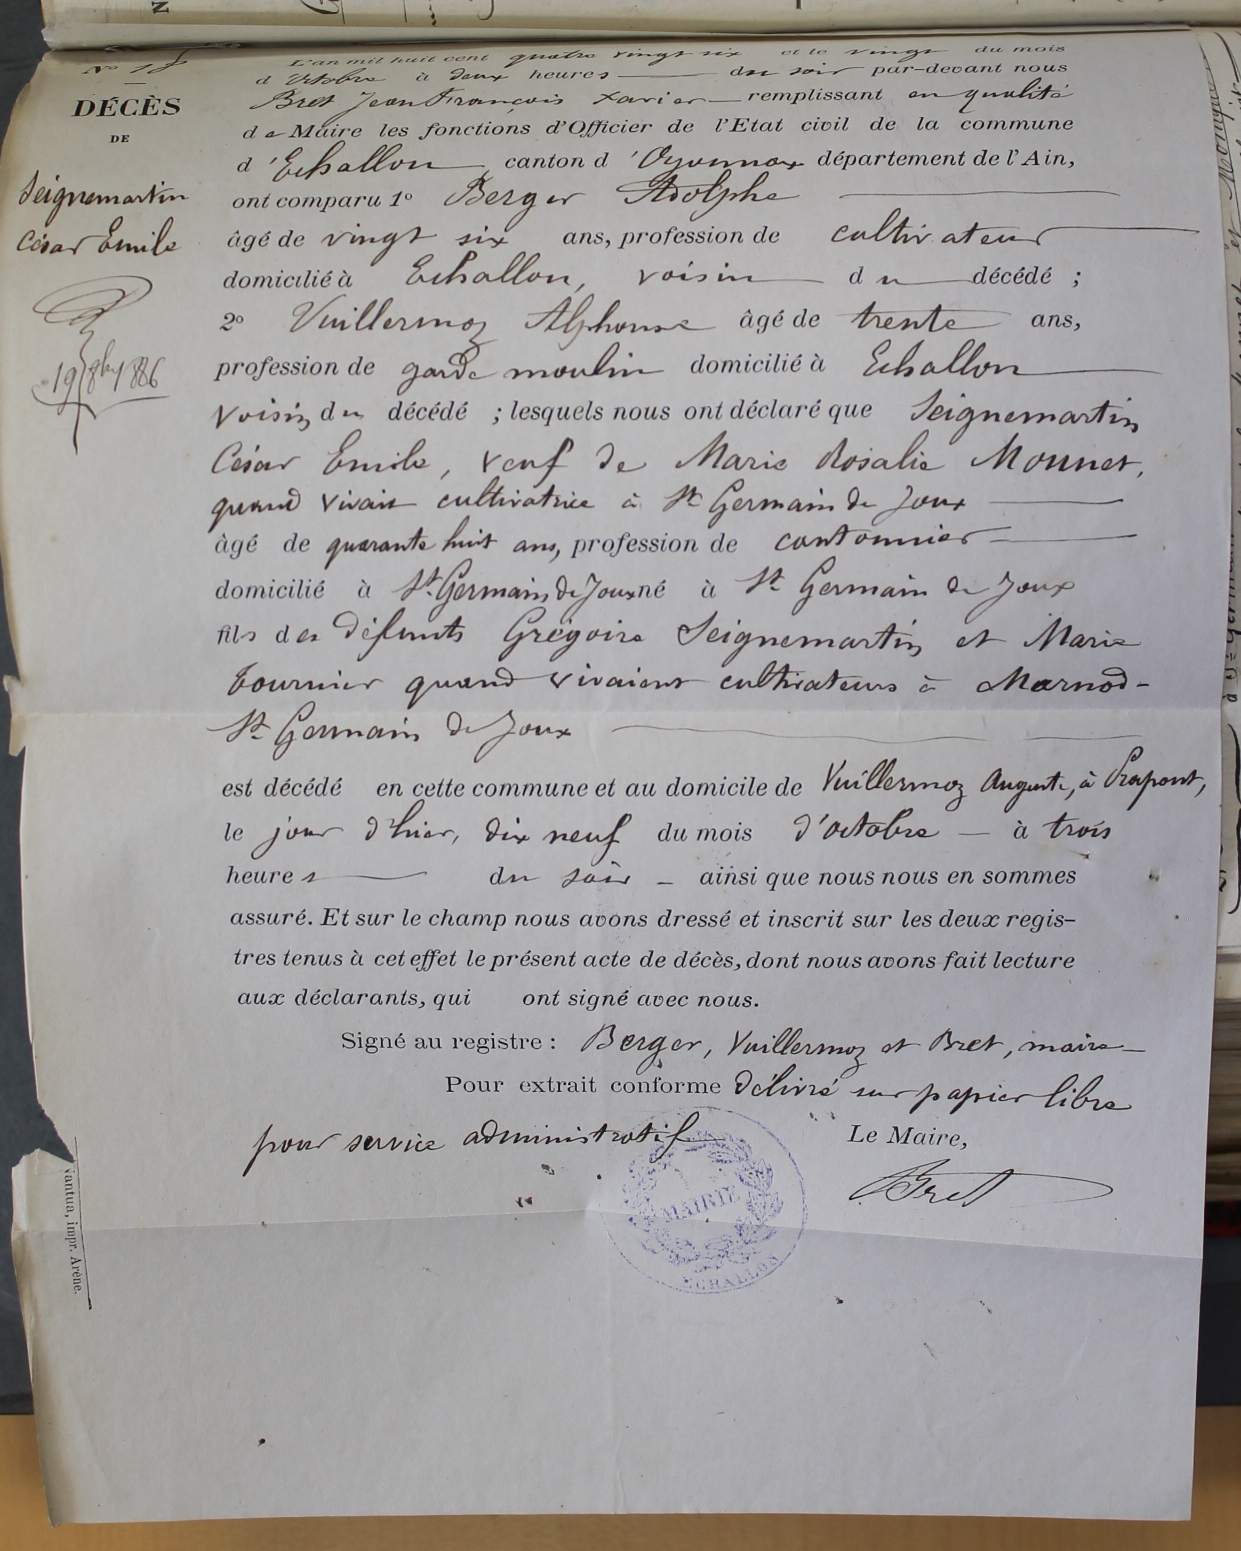 N° 18
DÉCÈS
DE
Seignemartin
César Emile
19 8bre 1886
L'an mil huit cent quatre vingt six et le vingt du mois
d'Octobre à deux heures du soir par-devant nous
Bret Jean François Xavier remplissant en qualité
de Maire les fonctions d'Officier de l'Etat civil de la commune
d'Echallon, canton d'Oyonnax département de l'Ain,
ont comparu 1° Berger Adolphe
âgé de vingt six ans, profession de cultivateur
domicilié à Echallon, voisin du décédé ;
2° Vuillermoz Alphonse âgé de trente ans,
profession de garde moulin domicilié à Echallon
voisin du décédé ; lesquels nous ont déclaré que Seignemartin
César Emile, veuf de Marie Rosalie Monnet,
quand vivait cultivatrice à St Germain de Joux
âgé de quarante huit ans, profession de cantonnier
domicilié à St. Germain de Joux né à St Germain de Joux
fils des défunts Grégoire Seignemartin et Marie
Tournier quand vivaient cultivateurs à Marnod-
St Germain de Joux
est décédé en cette commune et au domicile de Vuillermoz Auguste, à Prapont,
le jour d'hier, dix neuf du mois d'octobre à trois
heures du soir – ainsi que nous nous en sommes
assuré. Et sur le champ nous avons dressé et inscrit sur les deux regis-
tres tenus à cet effet le présent acte de décès, dont nous avons fait lecture
aux déclarants, qui ont signé avec nous.
Signé au registre : Berger, Vuillermoz et Bret, maire
Pour extrait conforme délivré sur papier libre
pour service administratif
Le Maire,
Bret
MAIRIE
ECHALLON
antua, impr. Arène.